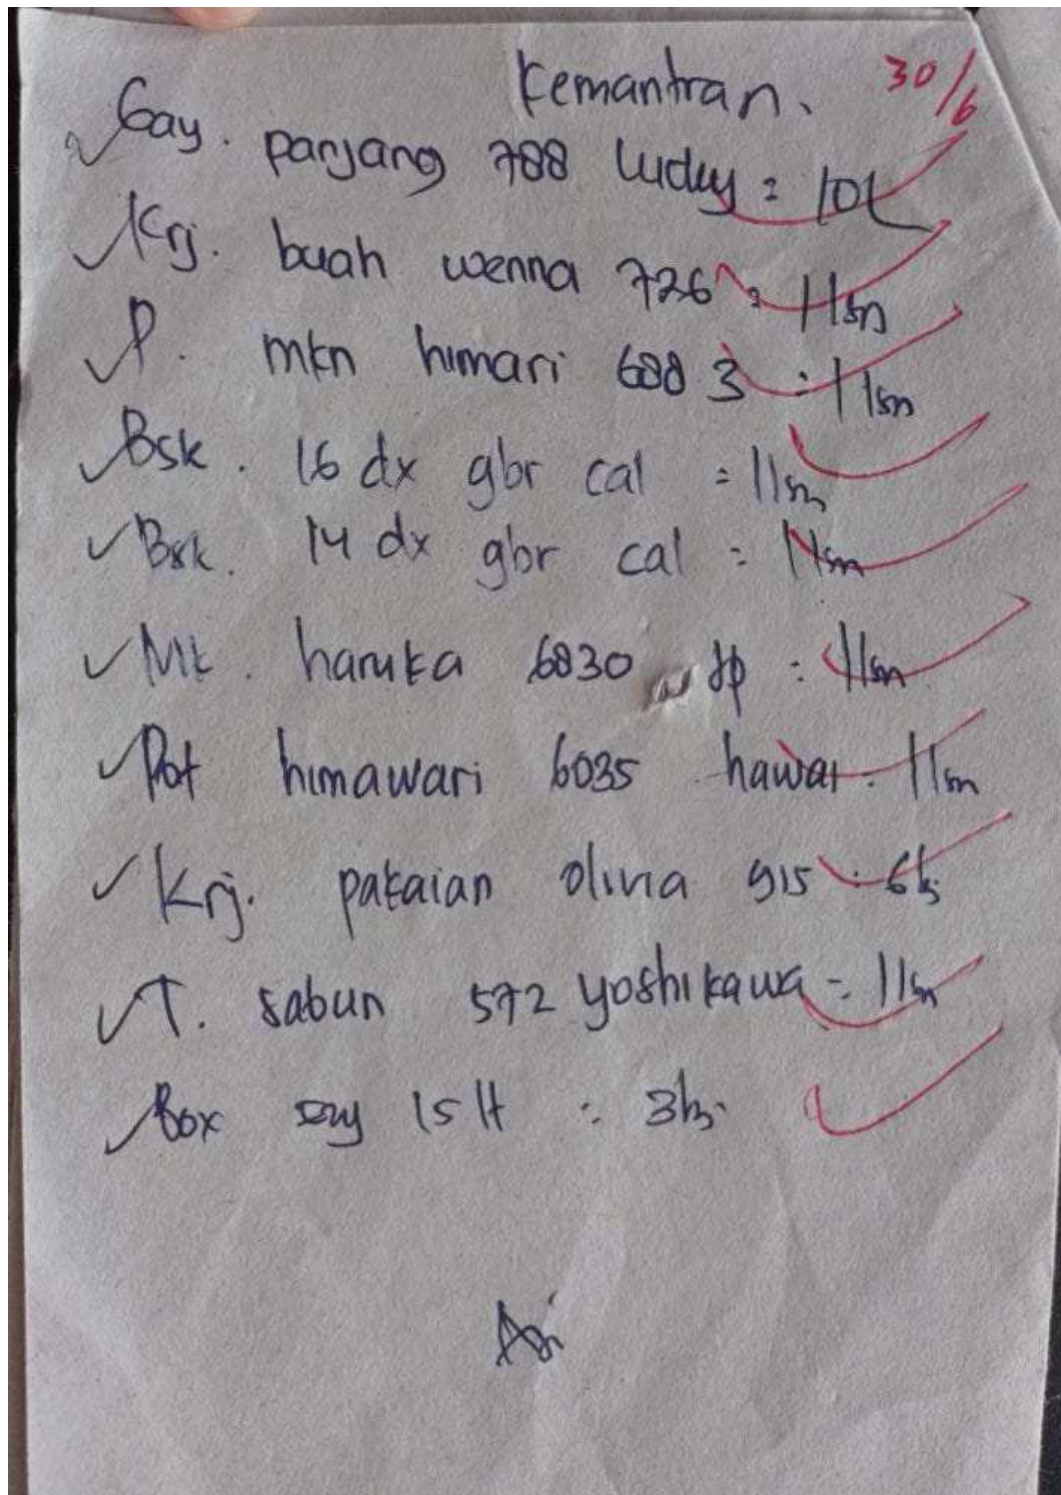 Kemantran. 30/6
Gay. panjang 788 lucky = 10L
Krj. buah wenna 726 = 1lsn
P. mkn himari 688 3 = 1lsn
Bsk. 16 dx gbr cal = 1lsn
Bsk. 14 dx gbr cal = 1lsn
Mk. haruka 6830 jp : 1lsn
Pot himawari 6035 hawai = 1lsn
Krj. pakaian olivia 915 : 6b
T. sabun 572 yoshikawa = 1lsn
Box 15 lt : 3b